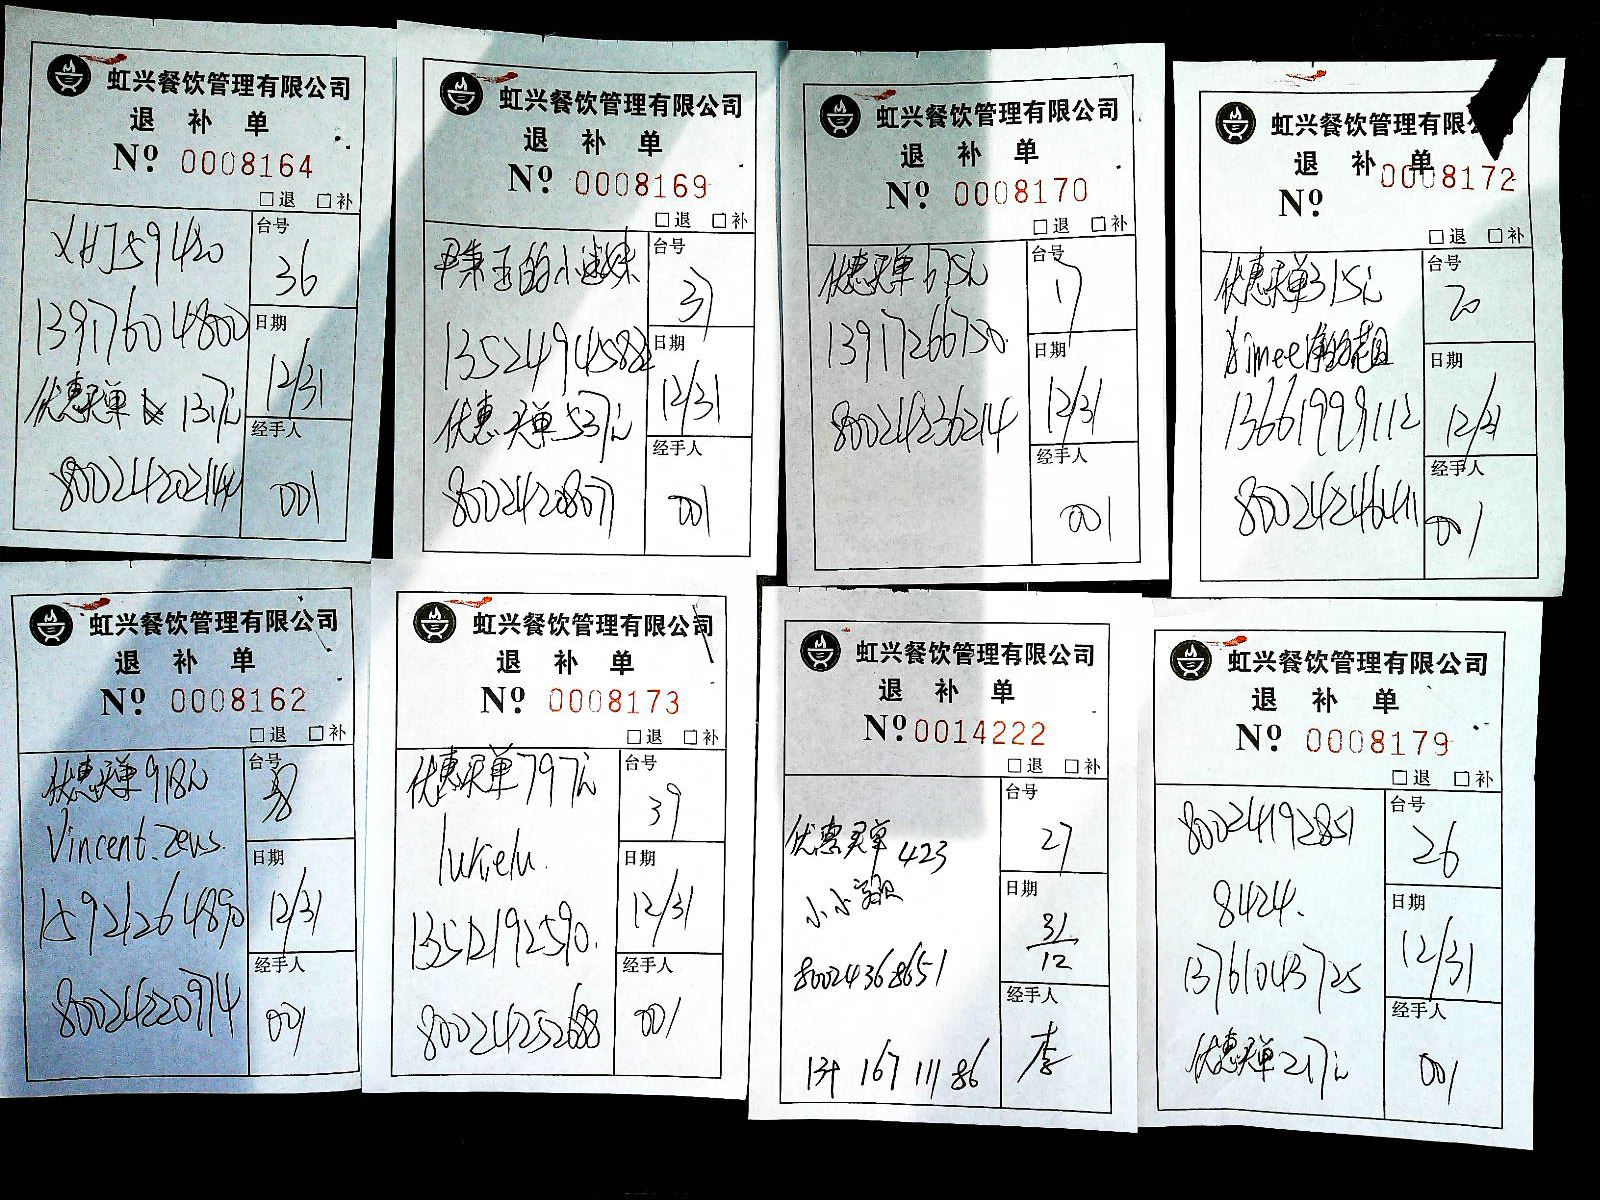 虹兴餐饮管理有限公司
退 补 单
Nº 0008164
□退 □补
XHJ59420
台号
36
13917604800
日期
12/31
优惠买单 137元
经手人
001
虹兴餐饮管理有限公司
退 补 单
Nº 0008169
□退 □补
尹秉玉的小迷妹
台号
37
13524945882
日期
12/31
优惠买单537元
经手人
80024208071
001
虹兴餐饮管理有限公司
退 补 单
Nº 0008170
□退 □补
优惠买单675元
台号
17
13917266750
日期
12/31
80024236214
经手人
001
虹兴餐饮管理有限公司
退 补 单
Nº 0008172
□退 □补
优惠买单315元
台号
20
日期
13661999112
12/31
经手人
800242464411
001
虹兴餐饮管理有限公司
退 补 单
Nº 0008162
□退 □补
优惠买单918元
台号
38
Vincent.zeus.
日期
15921264890
12/31
经手人
80024220974
001
虹兴餐饮管理有限公司
退 补 单
Nº 0008173
□退 □补
优惠买单797元
台号
39
lukielu.
日期
13512192590.
12/31
经手人
80024252688
001
虹兴餐饮管理有限公司
退 补 单
Nº 0014222
□退 □补
台号
27
优惠买单 423
日期
31/12
80024368651
经手人
李
134 167 111 86
虹兴餐饮管理有限公司
退 补 单
Nº 0008179
□退 □补
80024192851
台号
26
8424.
日期
12/31
13761043725
经手人
优惠买单217元
001